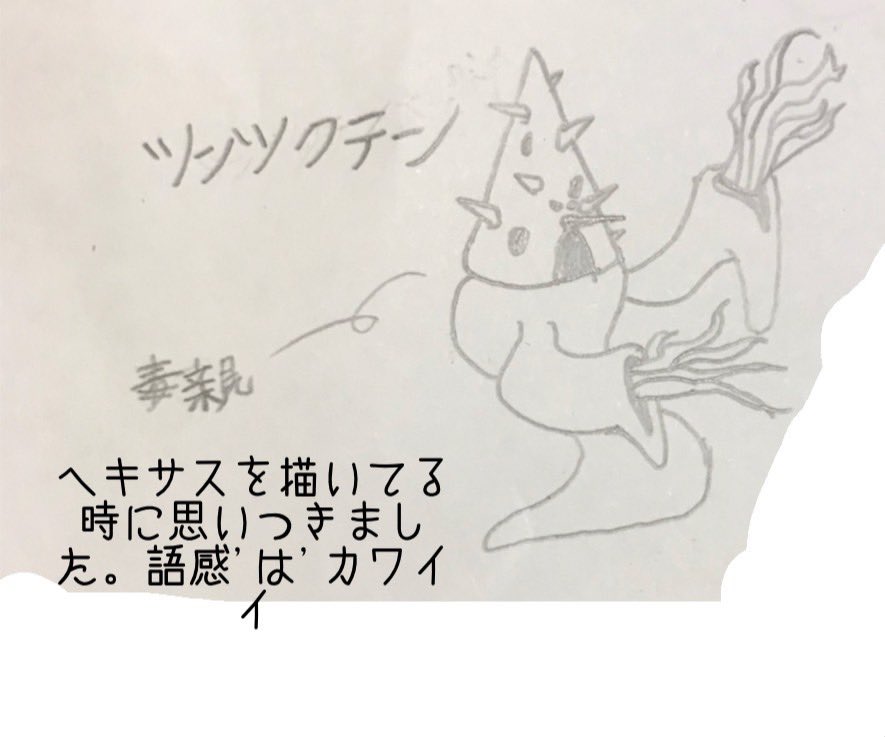 ツンツクテーン
毒親
ヘキサスを描いてる
時に思いつきまし
た。語感'は'カワイ
イ